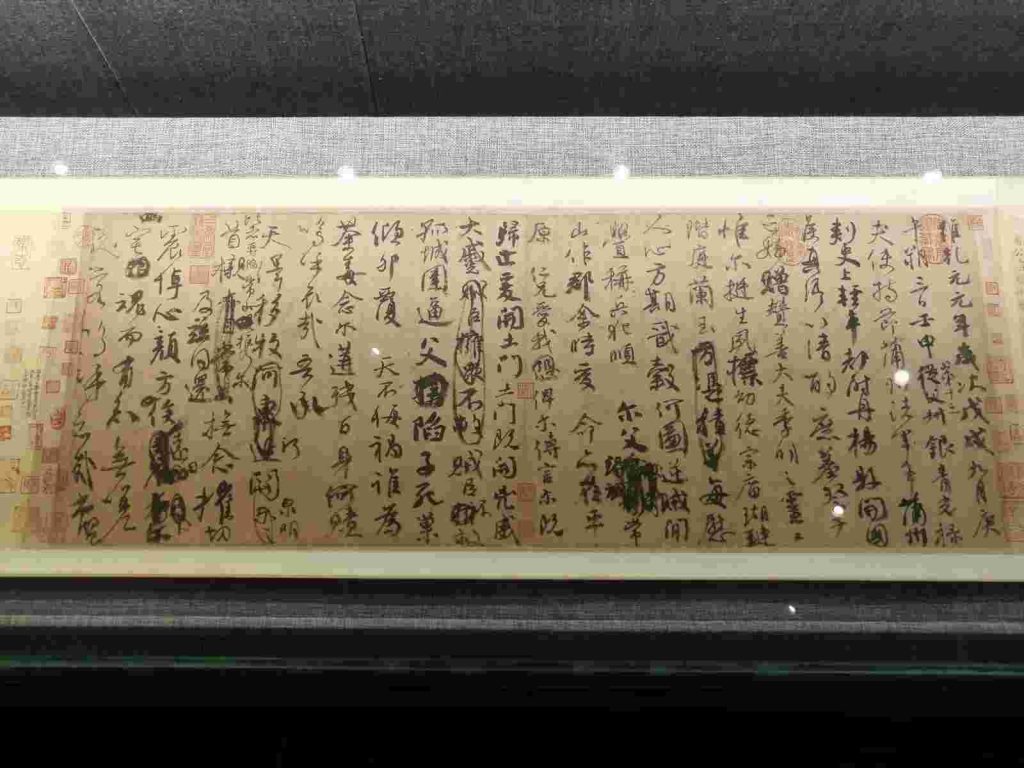 維乾元元年歲次戊戌九月庚
午朔三日壬申第十三從父銀青光祿
夫使持節蒲州諸軍事蒲州
刺史上輕車都尉丹楊縣開國
侯真卿以清酌庶羞祭于
亡姪贈贊善大夫季明之靈曰
惟爾挺生夙標幼德宗廟瑚璉
階庭蘭玉方憑積善每慰
人心方期戩穀何圖逆賊閒
釁稱兵犯順爾父常
山作郡余時受命亦在平
原仁兄愛我俾爾傳言爾既
歸止爰開土門土門既開凶威
大蹙賊臣擁眾不救賊臣不救
孤城圍逼父陷子死巢
傾卵覆天不悔禍誰為
荼毒念爾遘殘百身何贖
嗚乎哀哉吾承
天澤移牧河東近河關泉明
比者再陷常山攜爾
首櫬亦自常山及茲同還撫念摧切
震悼心顏方俟遠日
卜爾幽宅魂而有知無嗟
久客嗚呼哀哉尚饗